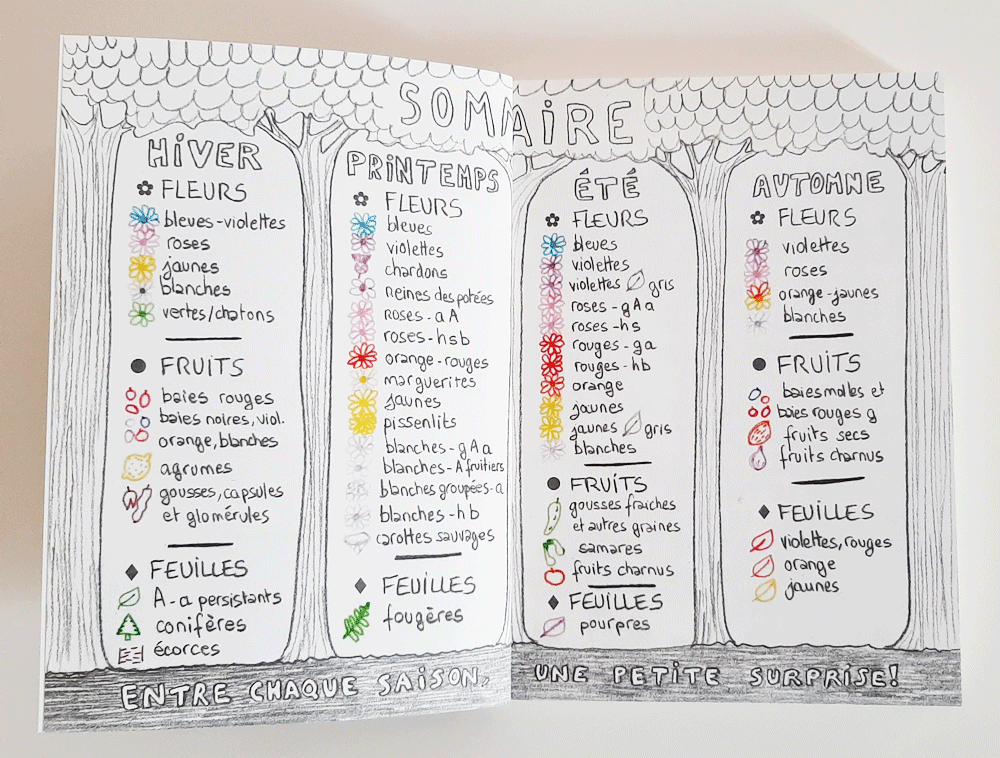 SOMMAIRE
HIVER
FLEURS
bleues-violettes
roses
jaunes
blanches
vertes/chatons
FRUITS
baies rouges
baies noires, viol.
orange, blanches
agrumes
gousses, capsules
et glomérules
FEUILLES
A-a persistants
conifères
écorces
PRINTEMPS
FLEURS
bleues
violettes
chardons
reines des potées
roses-aA
roses-hsb
orange-rouges
marguerites
jaunes
pissenlits
blanches-gAa
blanches-A fruitiers
blanches groupées-a
blanches-hb
carottes sauvages
FEUILLES
fougères
ÉTÉ
FLEURS
bleues
violettes
violettes gris
roses-gAa
roses-hs
rouges-ga
rouges-hb
orange
jaunes
jaunes gris
blanches
FRUITS
gousses fraiches
et autres graines
samares
fruits charnus
FEUILLES
pourpres
AUTOMNE
FLEURS
violettes
roses
orange-jaunes
blanches
FRUITS
baies molles et
baies rouges g
fruits secs
fruits charnus
FEUILLES
violettes, rouges
orange
jaunes
ENTRE CHAQUE SAISON, UNE PETITE SURPRISE!